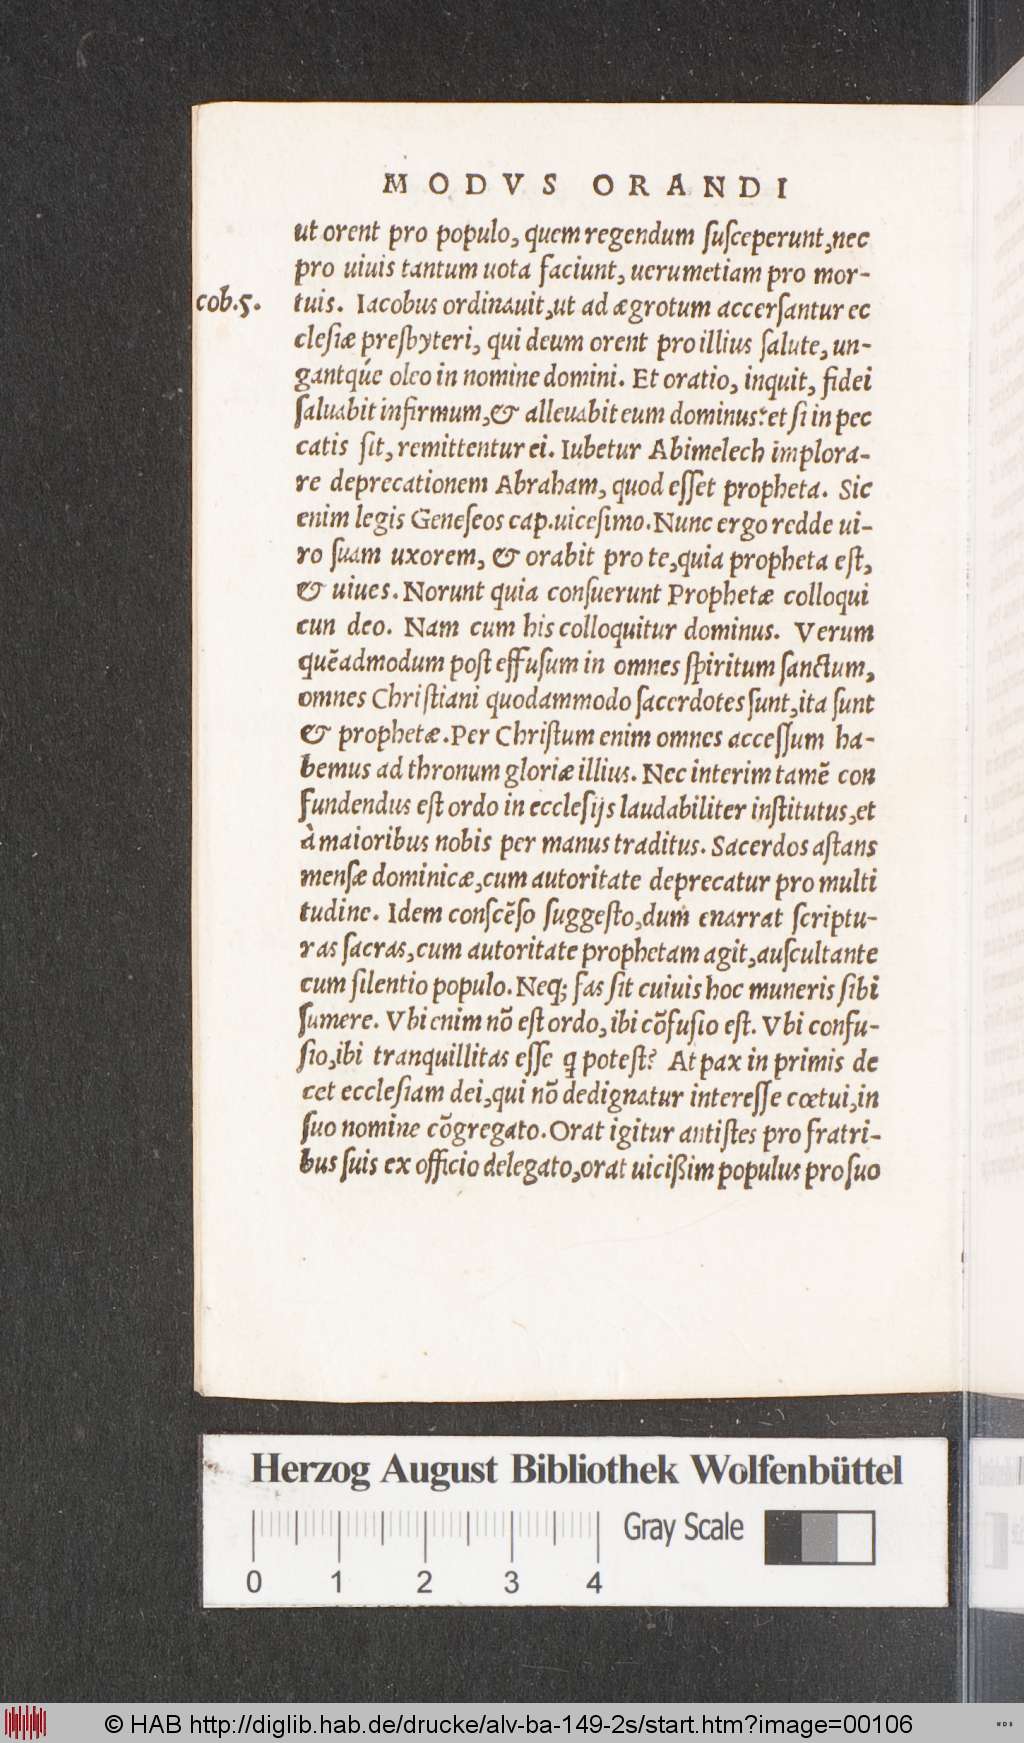 MODVS ORANDI
ut orent pro populo, quem regendum ſuſceperunt, nec
pro uiuis tantum uota faciunt, uerumetiam pro mor-
cob.5.
tuis. Iacobus ordinauit, ut ad ægrotum accerſantur ec
cleſiæ preſbyteri, qui deum orent pro illius ſalute, un-
gantq́ue oleo in nomine domini. Et oratio, inquit, fidei
ſaluabit infirmum, & alleuabit eum dominus: et ſi in pec
catis ſit, remittentur ei. Iubetur Abimelech implora-
re deprecationem Abraham, quod eſſet propheta. Sic
enim legis Geneſeos cap. uiceſimo. Nunc ergo redde ui-
ro ſuam uxorem, & orabit pro te, quia propheta eſt,
& uiues. Norunt quia conſuerunt Prophetæ colloqui
cun deo. Nam cum his colloquitur dominus. Verum
quẽadmodum poſt effuſum in omnes ſpiritum ſanctum,
omnes Chriſtiani quodammodo ſacerdotes ſunt, ita ſunt
& prophetæ. Per Chriſtum enim omnes acceſſum ha-
bemus ad thronum gloriæ illius. Nec interim tamẽ con
fundendus eſt ordo in eccleſijs laudabiliter inſtitutus, et
à maioribus nobis per manus traditus. Sacerdos aſtans
menſæ dominicæ, cum autoritate deprecatur pro multi
tudine. Idem conſcẽſo ſuggeſto, dum enarrat ſcriptu-
ras ſacras, cum autoritate prophetam agit, auſcultante
cum ſilentio populo. Neq; fas ſit cuiuis hoc muneris ſibi
ſumere. Vbi enim nõ eſt ordo, ibi cõfuſio eſt. Vbi confu-
ſio, ibi tranquillitas eſſe q poteſt? At pax in primis de
cet eccleſiam dei, qui nõ dedignatur intereſſe cœtui, in
ſuo nomine cõgregato. Orat igitur antiſtes pro fratri-
bus ſuis ex officio delegato, orat uicißim populus pro ſuo
Herzog August Bibliothek Wolfenbüttel
Gray Scale
0 1 2 3 4
© HAB http://diglib.hab.de/drucke/alv-ba-149-2s/start.htm?image=00106